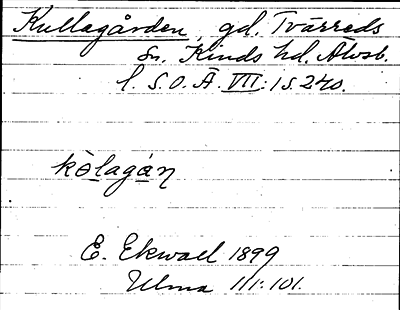 Kullagården, gd. Tvärreds
sn. Kinds hd. Älvsb.
l. S.O.Ä. VII:1 s. 240.
kòlagáɳ
E. Ekwall 1899
Ulma 111:101.